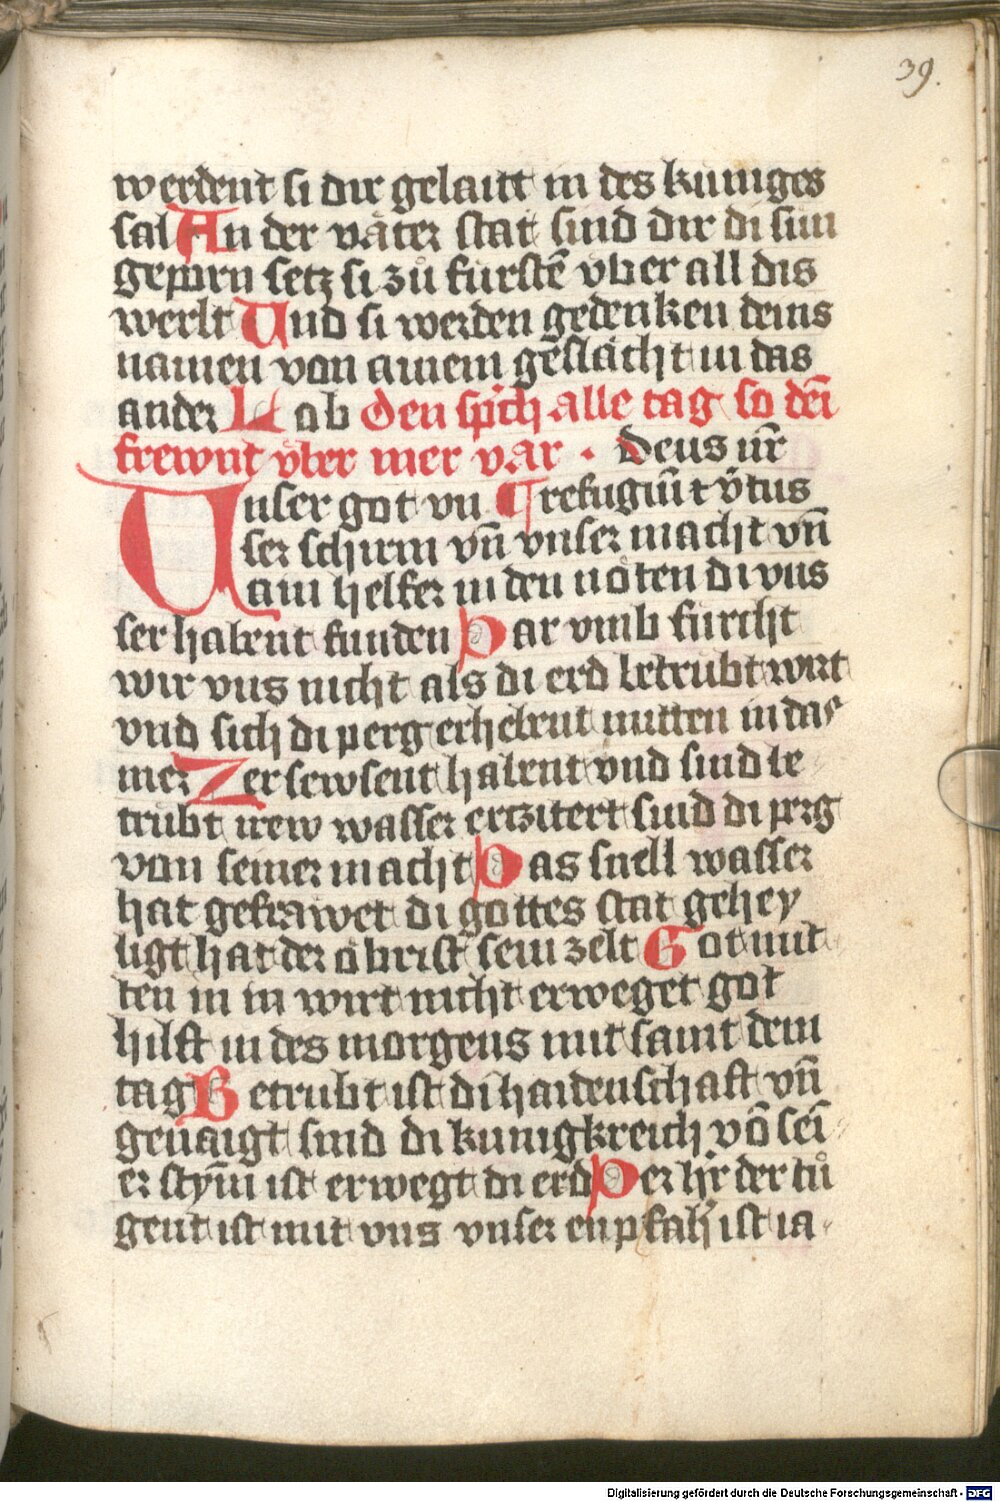 39.
werdent si dir gelaitt in des kuniges
sal An der våter stat sind dir di sun
geporn setz si zů furstē vber all dis
werlt Und si werden gedenken deins
namen von ainem geslächt in das
ander Lob Den sp̄ch alle tag so dein̄
frewnt vber mer var · Deus nr̄
Unser got vn ¶ refugiūt v̄tus
ser schirm vn̄ vnser macht vn̄
ain helfer in den nöten di vns
ser habent funden Dar vmb furcht
wir vns nicht als di erd betrubt wirt
vnd sich di perg erhebent mitten in das
mer Zersewsent habent vnd sind be
trübt irew wasser erczitert sind di perg
von seiner macht Das snell wasser
hat gefrawet di gottes stat gehey
ligt hat der öbrist sein zelt Got mit
ten in in wirt nicht erweget got
hilft in des morgens mit samt dem
tag Betrubt ist di haidenschaft vn̄
genaigt sind di kunigkreich vō sei
er stym̄ ist erwegt di erd Der hr̄ der tů
gent ist mit vns vnser enpfah̄ ist ia
Digitalisierung gefördert durch die Deutsche Forschungsgemeinschaft - DFG